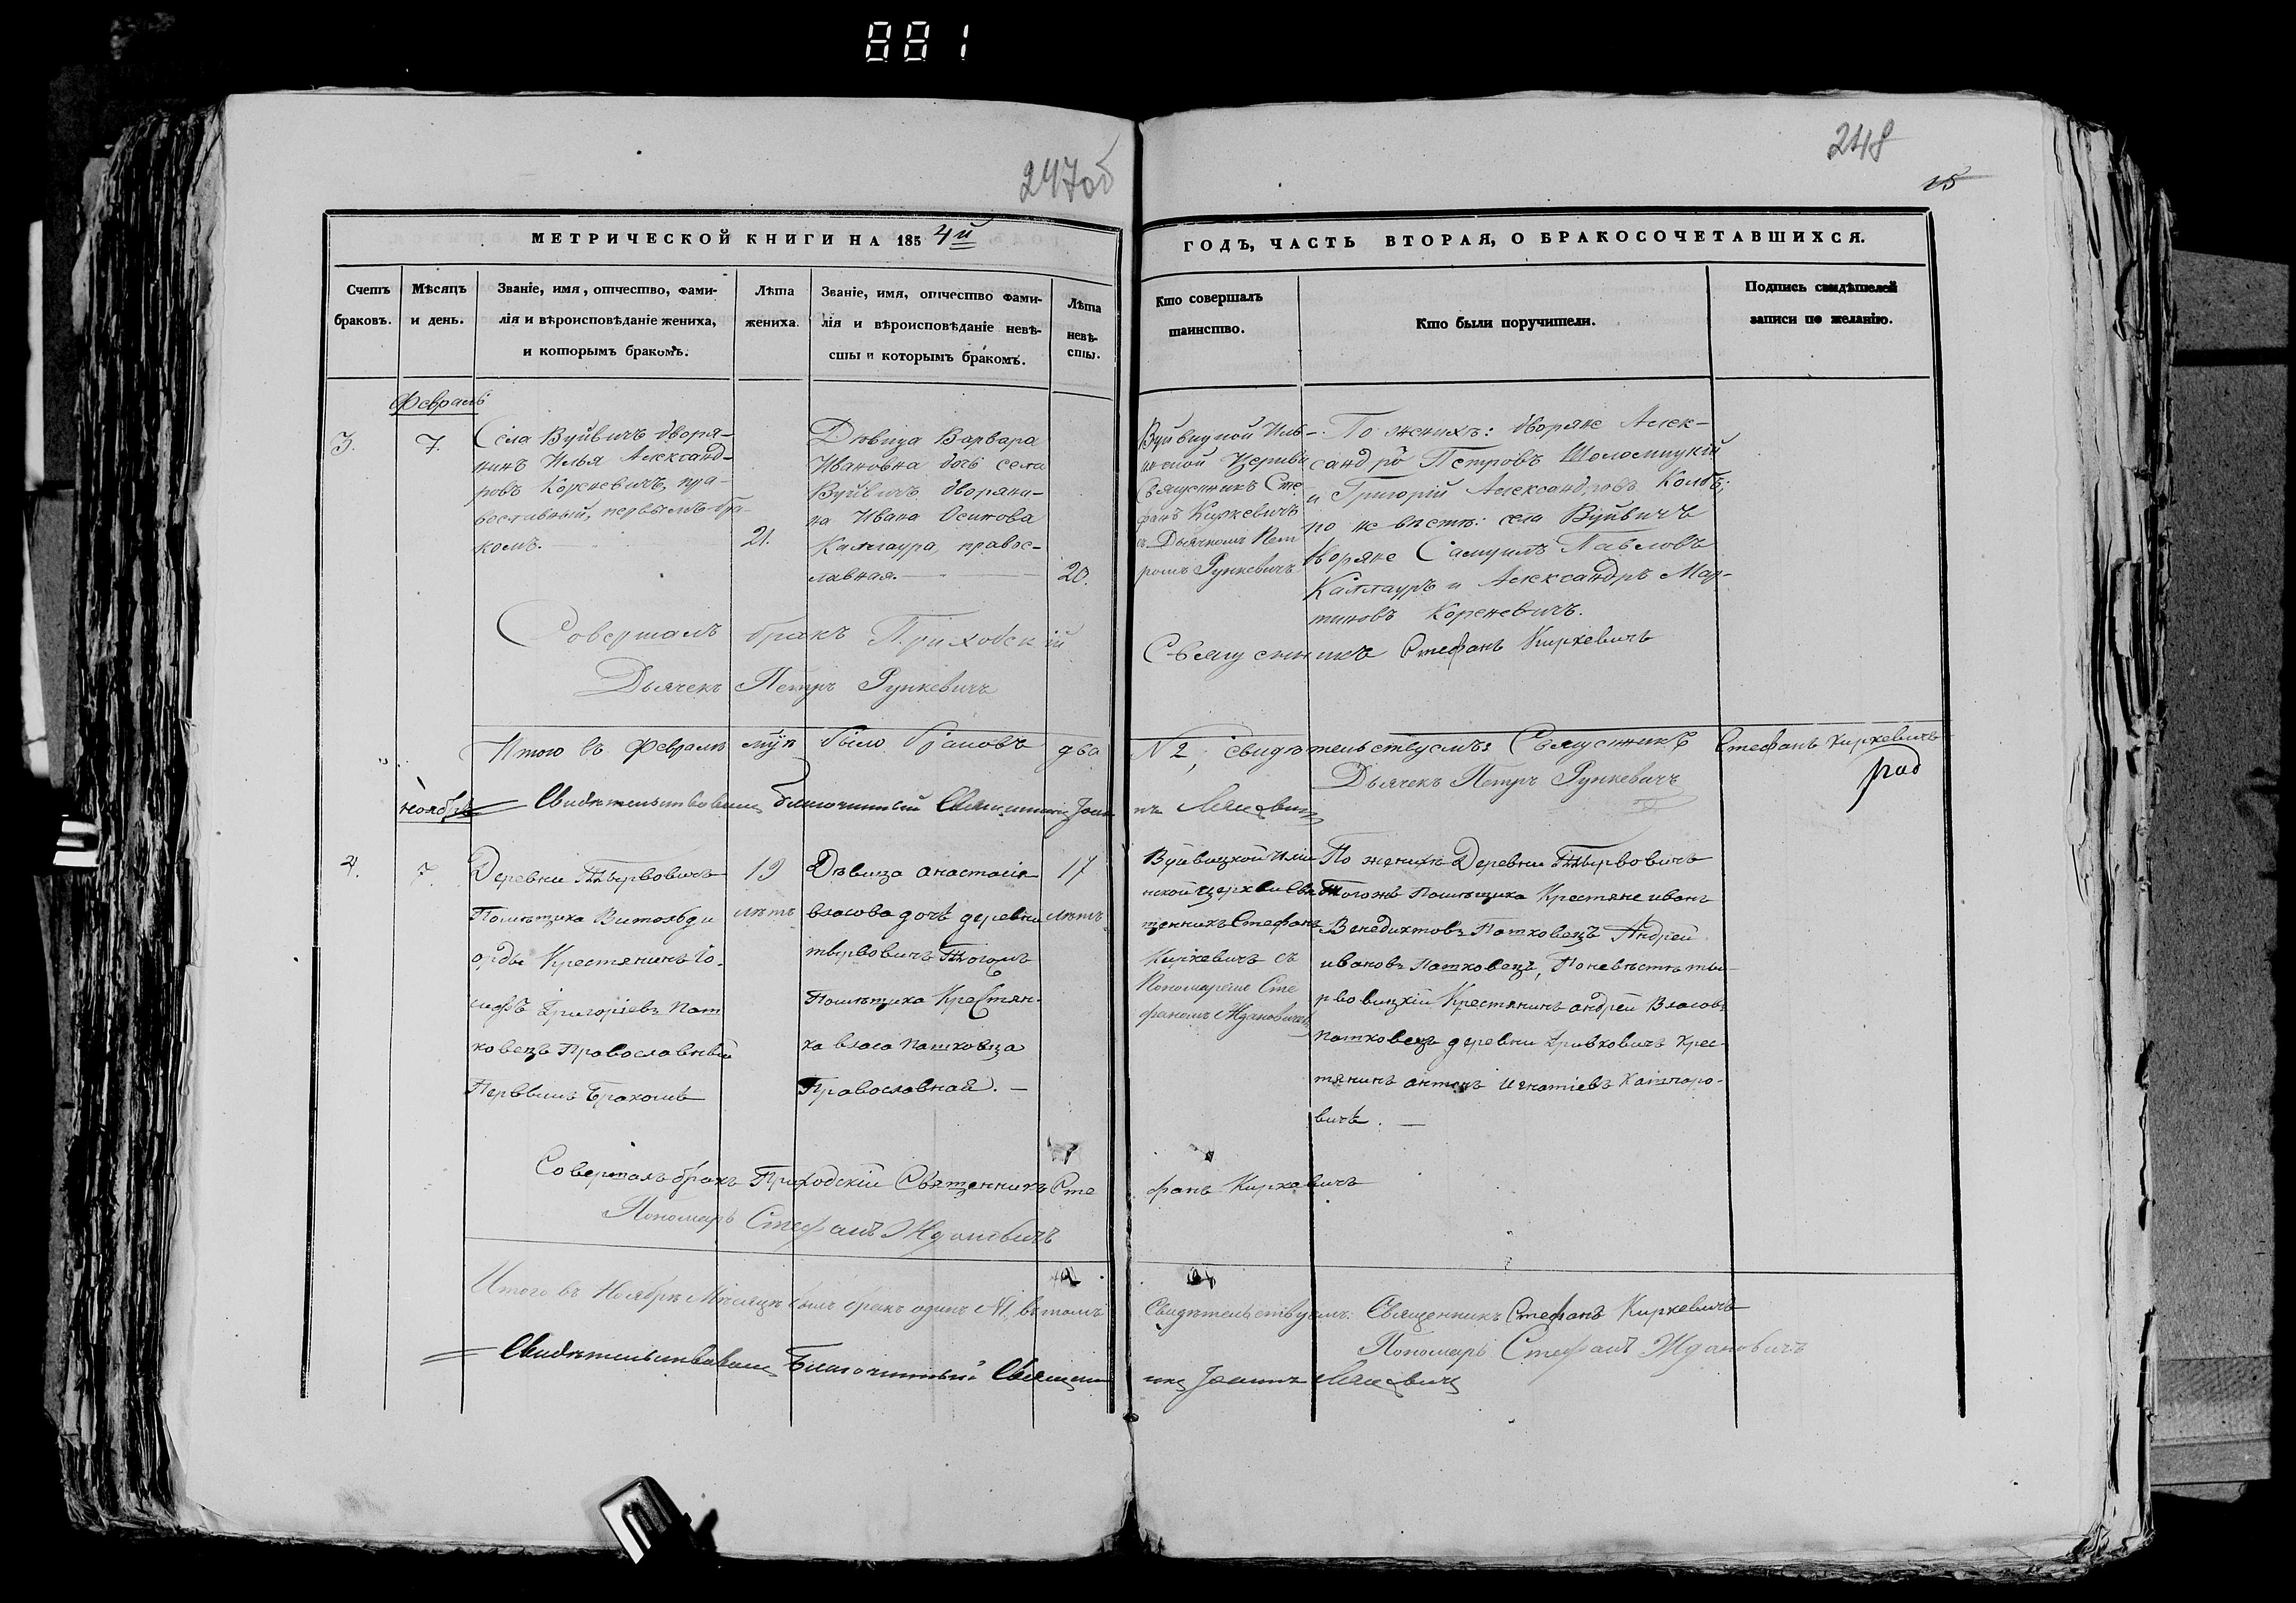 881
247об
248
15
МЕТРИЧЕСКОЙ КНИГИ НА 1854й
ГОДЪ, ЧАСТЬ ВТОРАЯ, О БРАКОСОЧЕТАВШИХСЯ.
Счетъ
браковъ.
Мѣсяцъ
и день.
Званіе, имя, отчество, фами-
лія и вѣроисповѣданіе жениха,
и которымъ бракомъ.
Лѣта
жениха.
Званіе, имя, отчество фами-
лія и вѣроисповѣданіе невѣ-
сты и которымъ бракомъ.
Лѣта
невѣ-
сты.
Кто совершалъ
таинство.
Кто были поручители.
Подпись свидѣтелей
записи по желанію.
Февраль
3.
7.
Села Вуйвичъ дворя-
нинъ Илья Александ-
ровъ Кореневичъ, пра-
вославный, первымъ бра-
комъ.
21.
Дѣвица Варвара
Ивановна дочь села
Вуйвичъ дворяни-
на Ивана Осипова
Каллаура, правос-
лавная.
20.
Вуйвицкой Иль-
инской Церкви
Священникъ Сте
фанъ Киркевичъ
съ Дьячкомъ Пет
ромъ Рункевичъ
По женихѣ: дворяне Алек-
сандръ Петровъ Шоломицкій
и Григорій Александровъ Колбъ;
по невѣстѣ: села Вуйвичъ
дворяне Самуилъ Павловъ
Каллауръ и Александръ Мар-
тиновъ Кореневичъ.
Совершалъ бракъ Приходскій
Священникъ Стефанъ Киркевичъ
Дьячекъ Петръ Рункевичъ
Итого въ Февралѣ м-цѣ было браковъ два
N 2, свидѣтельствуемъ: Священникъ Стефанъ Киркевичъ
Дьячекъ Петръ Рункевичъ
Ноябрь
Свидѣтельствовалъ благочинный Священникъ Іоан
нъ
4.
7.
Деревни Тырвовичъ
Помѣщика Витольда
орды Крестянинъ Іо-
сифъ Григоріевъ Пат
ковецъ Православный
Первымъ Бракомъ
19
лѣтъ
Дѣвица Анастасія
власова дочь деревни
тырвовичъ Тогожъ
Помѣщика Крестян-
ка власа патковца
Православная. —
17
лѣтъ
Вуйвицкой Ильи
нской церкви Свя
щенникъ Стефанъ
Киркевичъ съ
Пономаремъ Сте
фаномъ Ждановичемъ
По женихѣ Деревни Тырвовичъ
Тогожъ Помѣщика Крестяне иванъ
Венедиктовъ Патковецъ Андрей
ивановъ Патковецъ, По невѣстѣ ты-
рвовицкій Крестянинъ андрей Власовъ
патковецъ деревни Кривковичъ Крес-
тянинъ антонъ Игнатіевъ
вичъ. —
Совершалъ бракъ Приходскій Священникъ Сте
фанъ Киркевичъ
Пономарь Стефанъ Ждановичъ
Итого въ Ноябрѣ Мѣсяцѣ былъ бракъ одинъ N1, въ томъ
Свидѣтельствуемъ: Священникъ Стефанъ Киркевичъ
Пономарь Стефанъ Ждановичъ
Свидѣтельствовалъ Благочинный Священ
никъ Іоаннъ